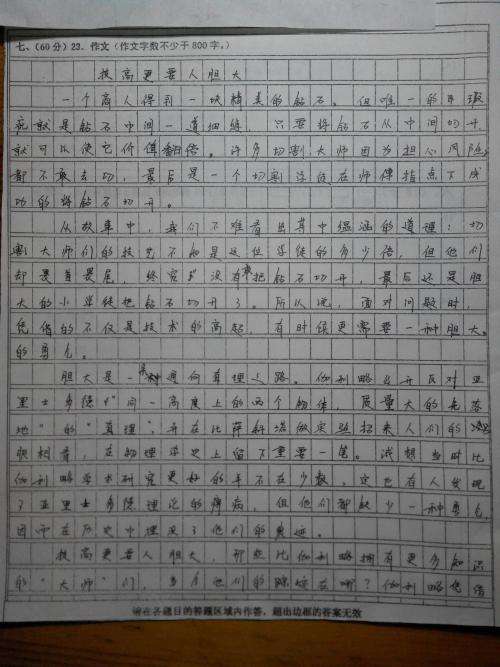 七、(60分) 23. 作文 (作文字数不少于800字。)
技高更要人胆大
一个商人得到一块精美的钻石。但唯一的瑕
疵就是钻石中间一道细缝，只要将钻石从中间切开，
就可以使它价值翻倍。许多切割大师因为担心风险，
都不敢去切，最后是一个切割学徒在师傅指点下成
功的将钻石切开。
从故事中，我们不难看出其中蕴涵的道理：切
割大师们的技艺不知是这位学徒的多少倍，但他们
却畏首畏尾，终究没有敢把钻石切开，最后还是胆
大的小学徒把钻石切开了。所以说，面对问题时，
凭借的不仅是技术的高超，有时候更需要一种胆大
的勇气。
胆大是一条通向真理之路。伽利略公开反对亚
里士多德"同一高度上的两个物体，质量大的先落
地"的"真理"，并在比萨斜塔做实验招来人们的
眼相看，在物理学史上留下重要一笔。试想当时比
伽利略学术研究更好的并不在少数，定也有人发现
了亚里士多德理论的弊病，但他们都缺少一种勇气，
因而在历史中埋没了他们的
技高更要人胆大，那些比伽利略拥有更多知识
的"大师"们，今天他们的踪迹在哪？伽利略凭借
请在各题目的答题区域内作答，超出边框的答案无效